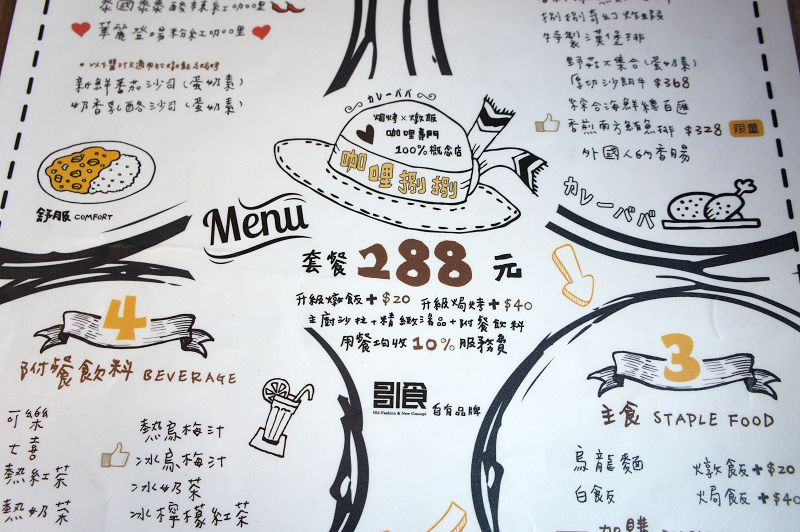 泰國泰泰酸辣紅咖哩
華麗登場粉紅咖哩
新鮮番茄沙司(蛋奶素)
奶香乳酪沙司(蛋奶素)
舒服 COMFORT
カレーババ
焗烤×燉飯
咖哩專門
100%概念店
咖哩捌捌
捌捌奇幻炸蝦
特製漢堡排
野菇大集合(蛋奶素)
厚切沙朗牛 $368
綜合海鮮總百匯
香煎南方鮪魚排 $328 限量
外國人的香腸
カレーババ
Menu
套餐 288 元
升級燉飯+$20 升級焗烤+$40
主廚沙拉+精緻湯品+附餐飲料
用餐均收10%服務費
引食
Old Fashion & New Concept
自有品牌
4
附餐飲料 BEVERAGE
可樂
七喜
熱紅茶
熱奶茶
熱烏梅汁
冰烏梅汁
冰奶茶
冰檸檬紅茶
3
主食 STAPLE FOOD
烏龍麵
白飯
燉飯+$20
焗飯+$40
加購